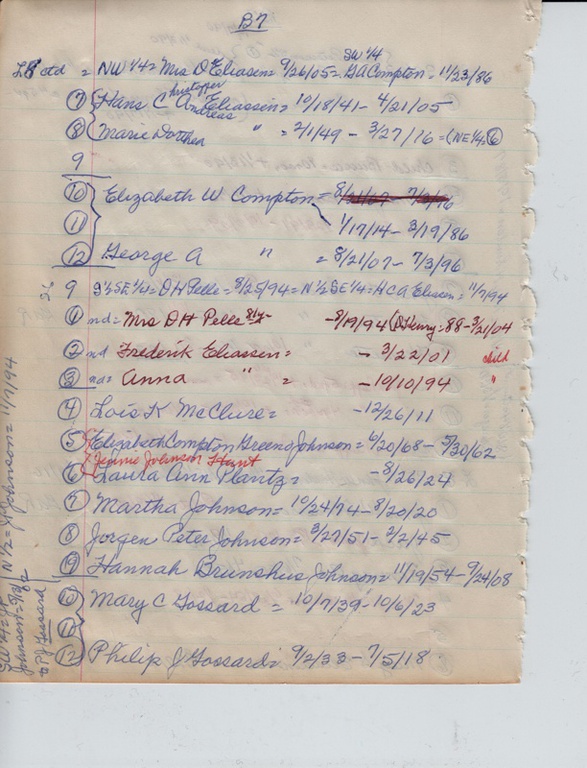 B7
SW 1/4
L8 ctd = NW 1/4 = Mrs D Eliasen = 9/26/05 = GA Compton = 11/23/86
hristoffer
⑦ Hans C Andreas Eliassen = 10/18/41 - 4/21/05
⑧ Marie Dorthea " = 2/1/49 - 3/27/16 = (NE 1/4 = ⑥
9
⑩ Elizabeth W Compton = 8/21/07 - 7/3/96
⑪ 1/17/14 - 3/19/86
⑫ George A " = 8/21/07 - 7/3/96
9 S 1/2 SE 1/4 = DH Pelle = 8/25/94 = N 1/2 SE 1/4 = HCA Eliasen = 11/7/94
① nd = Mrs DH Pelle 81y - 8/19/94 (D Henry = 88 - 3/21/04
② nd Frederik Eliassen = - 3/22/01 child
③ nd = Anna " = - 10/10/94 "
④ Lois K McClure = - 12/26/11
⑤ Elizabeth Compton Green Johnson = 6/20/68 - 5/30/62
Jennie Johnson Hunt
⑥ Laura Ann Plantz = - 8/26/24
⑦ Martha Johnson = 10/24/74 - 8/20/20
⑧ Jorgen Peter Johnson = 3/27/51 - 3/2/45
⑨ Hannah Brunshus Johnson = 11/19/54 - 9/24/08
⑩ Mary C Gossard = 10/7/39 - 10/6/23
⑪
⑫ Philip J Gossard = 9/2/33 - 7/5/18
N 1/2 = JP Johnson = 11/7/94
to PJ Gossard